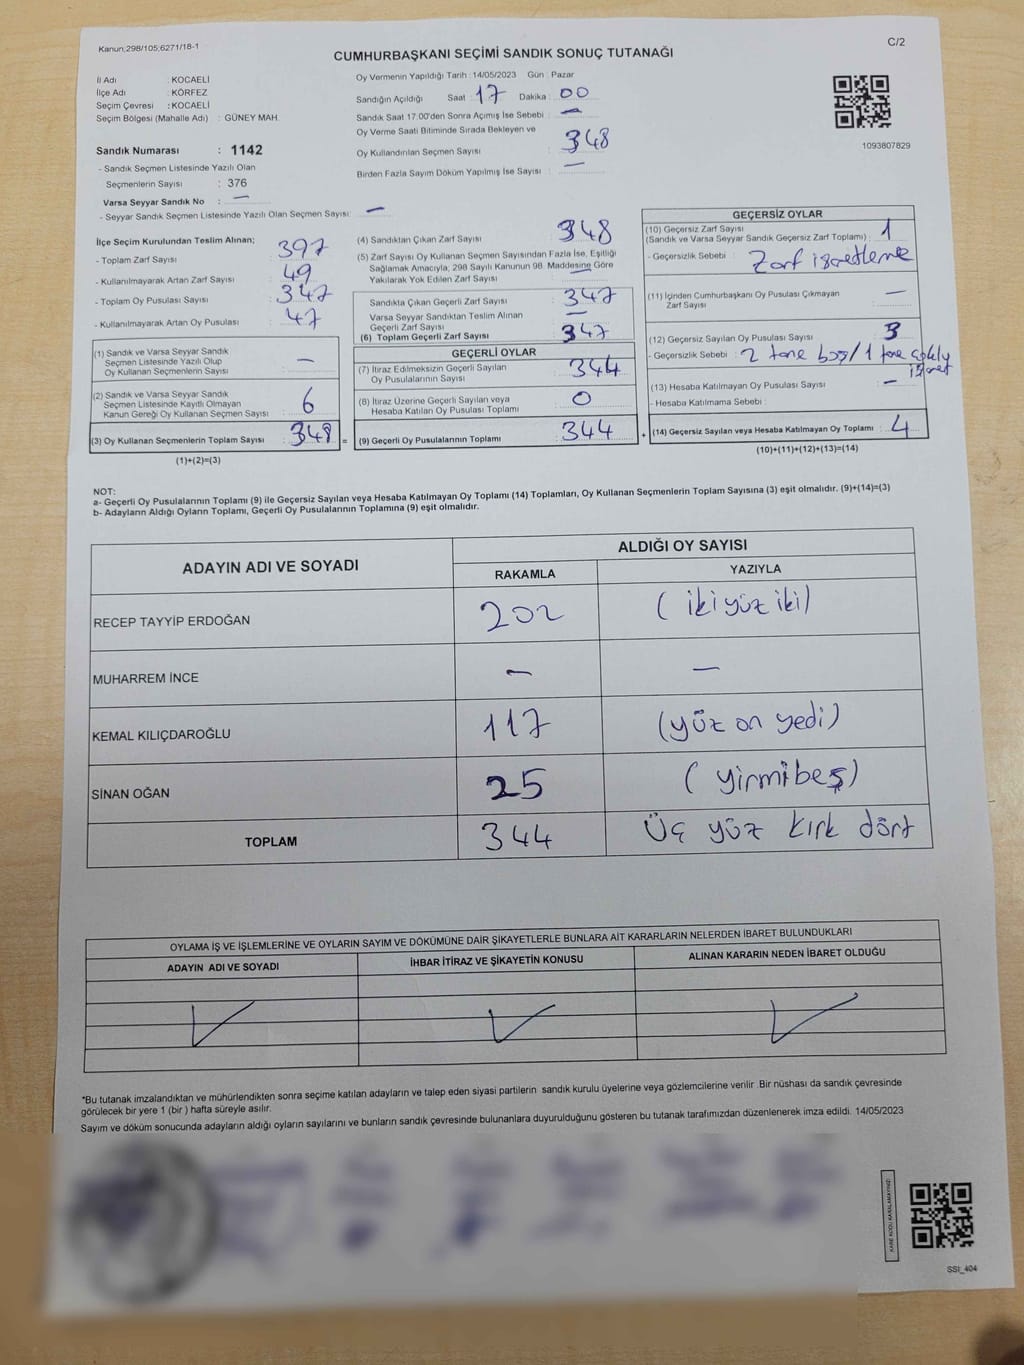 Kanun;298/105;6271/18-1
C/2
CUMHURBAŞKANI SEÇİMİ SANDIK SONUÇ TUTANAĞI
İl Adı : KOCAELİ
İlçe Adı : KÖRFEZ
Seçim Çevresi : KOCAELİ
Seçim Bölgesi (Mahalle Adı) : GÜNEY MAH.
Sandık Numarası : 1142
- Sandık Seçmen Listesinde Yazılı Olan
Seçmenlerin Sayısı : 376
Varsa Seyyar Sandık No : —
- Seyyar Sandık Seçmen Listesinde Yazılı Olan Seçmen Sayısı: —
Oy Vermenin Yapıldığı Tarih : 14/05/2023 Gün : Pazar
Sandığın Açıldığı Saat : 17 Dakika : 00
Sandık Saat 17:00'den Sonra Açımış İse Sebebi : —
Oy Verme Saati Bitiminde Sırada Bekleyen ve
Oy Kullandırılan Seçmen Sayısı : 348
Birden Fazla Sayım Döküm Yapılmış İse Sayısı : —
1093807829
İlçe Seçim Kurulundan Teslim Alınan;
- Toplam Zarf Sayısı : 397
- Kullanılmayarak Artan Zarf Sayısı : 49
- Toplam Oy Pusulası Sayısı : 347
- Kullanılmayarak Artan Oy Pusulası : 47
(1) Sandık ve Varsa Seyyar Sandık
Seçmen Listesinde Yazılı Olup
Oy Kullanan Seçmenlerin Sayısı : —
(2) Sandık ve Varsa Seyyar Sandık
Seçmen Listesinde Kayıtlı Olmayan
Kanun Gereği Oy Kullanan Seçmen Sayısı : 6
(3) Oy Kullanan Seçmenlerin Toplam Sayısı : 348 =
(1)+(2)=(3)
(4) Sandıktan Çıkan Zarf Sayısı : 348
(5) Zarf Sayısı Oy Kullanan Seçmen Sayısından Fazla İse, Eşitliği
Sağlamak Amacıyla, 298 Sayılı Kanunun 98. Maddesine Göre
Yakılarak Yok Edilen Zarf Sayısı : —
Sandıkta Çıkan Geçerli Zarf Sayısı : 347
Varsa Seyyar Sandıktan Teslim Alınan
Geçerli Zarf Sayısı : —
(6) Toplam Geçerli Zarf Sayısı : 347
GEÇERLİ OYLAR
(7) İtiraz Edilmeksizin Geçerli Sayılan
Oy Pusulalarının Sayısı : 344
(8) İtiraz Üzerine Geçerli Sayılan veya
Hesaba Katılan Oy Pusulası Toplamı : 0
(9) Geçerli Oy Pusulalarının Toplamı : 344 +
GEÇERSİZ OYLAR
(10) Geçersiz Zarf Sayısı
(Sandık ve Varsa Seyyar Sandık Geçersiz Zarf Toplamı) : 1
- Geçersizlik Sebebi : Zarf işaretleme
(11) İçinden Cumhurbaşkanı Oy Pusulası Çıkmayan
Zarf Sayısı : —
(12) Geçersiz Sayılan Oy Pusulası Sayısı : 3
- Geçersizlik Sebebi : 2 tane boş / 1 tane
(13) Hesaba Katılmayan Oy Pusulası Sayısı : —
- Hesaba Katılmama Sebebi :
(14) Geçersiz Sayılan veya Hesaba Katılmayan Oy Toplamı : 4
(10)+(11)+(12)+(13)=(14)
NOT:
a- Geçerli Oy Pusulalarının Toplamı (9) ile Geçersiz Sayılan veya Hesaba Katılmayan Oy Toplamı (14) Toplamları, Oy Kullanan Seçmenlerin Toplam Sayısına (3) eşit olmalıdır. (9)+(14)=(3)
b- Adayların Aldığı Oyların Toplamı, Geçerli Oy Pusulalarının Toplamına (9) eşit olmalıdır.
ADAYIN ADI VE SOYADI
ALDIĞI OY SAYISI
RAKAMLA YAZIYLA
RECEP TAYYİP ERDOĞAN 202 (iki yüz iki)
MUHARREM İNCE — —
KEMAL KILIÇDAROĞLU 117 (yüz on yedi)
SİNAN OĞAN 25 (yirmibeş)
TOPLAM 344 Üç yüz kırk dört
OYLAMA İŞ VE İŞLEMLERİNE VE OYLARIN SAYIM VE DÖKÜMÜNE DAİR ŞİKAYETLERLE BUNLARA AİT KARARLARIN NELERDEN İBARET BULUNDUKLARI
ADAYIN ADI VE SOYADI İHBAR İTİRAZ VE ŞİKAYETİN KONUSU ALINAN KARARIN NEDEN İBARET OLDUĞU
*Bu tutanak imzalandıktan ve mühürlendikten sonra seçime katılan adayların ve talep eden siyasi partilerin sandık kurulu üyelerine veya gözlemcilerine verilir. Bir nüshası da sandık çevresinde
görülecek bir yere 1 (bir) hafta süreyle asılır.
Sayım ve döküm sonucunda adayların aldığı oyların sayılarını ve bunların sandık çevresinde bulunanlara duyurulduğunu gösteren bu tutanak tarafımızdan düzenlenerek imza edildi. 14/05/2023
KARE KODU KARALAMAYINIZ!
SSİ_404